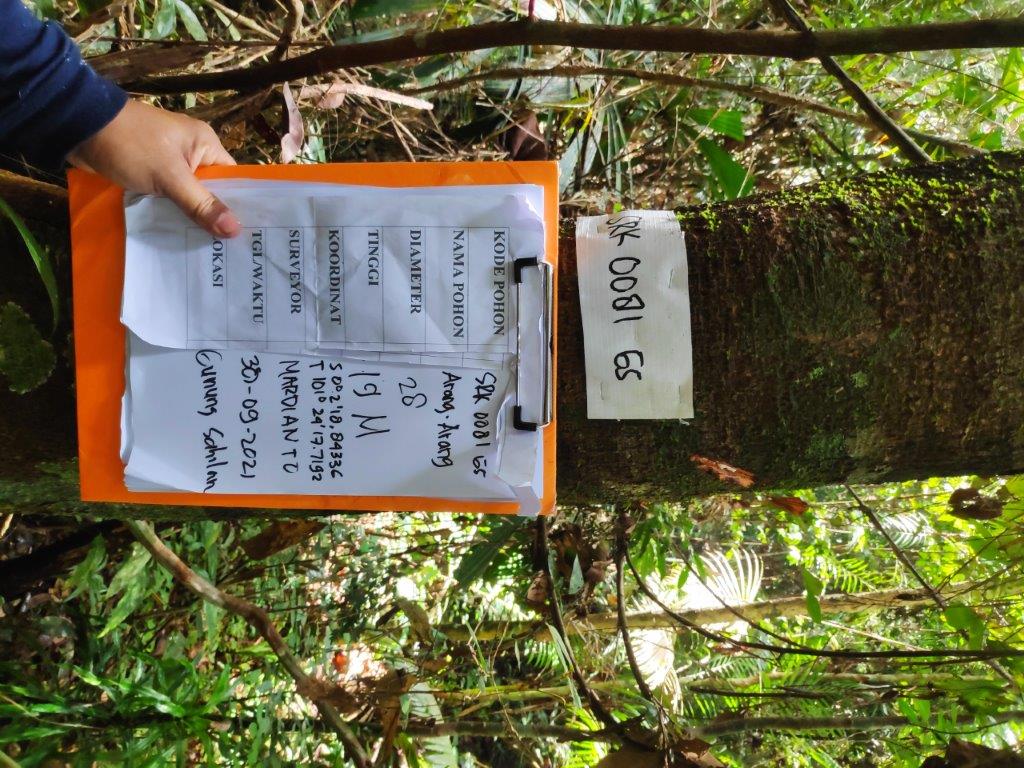 SRK 0081 GS
KODE POHON SRK 0081 GS
NAMA POHON Arang-Arang
DIAMETER 28
TINGGI 19 M
KOORDINAT S 0°2'18.84336
T 101° 24'17.7192
SURVEYOR MARDIANTO
TGL/WAKTU 30-09-2021
LOKASI Gunung Sahilan